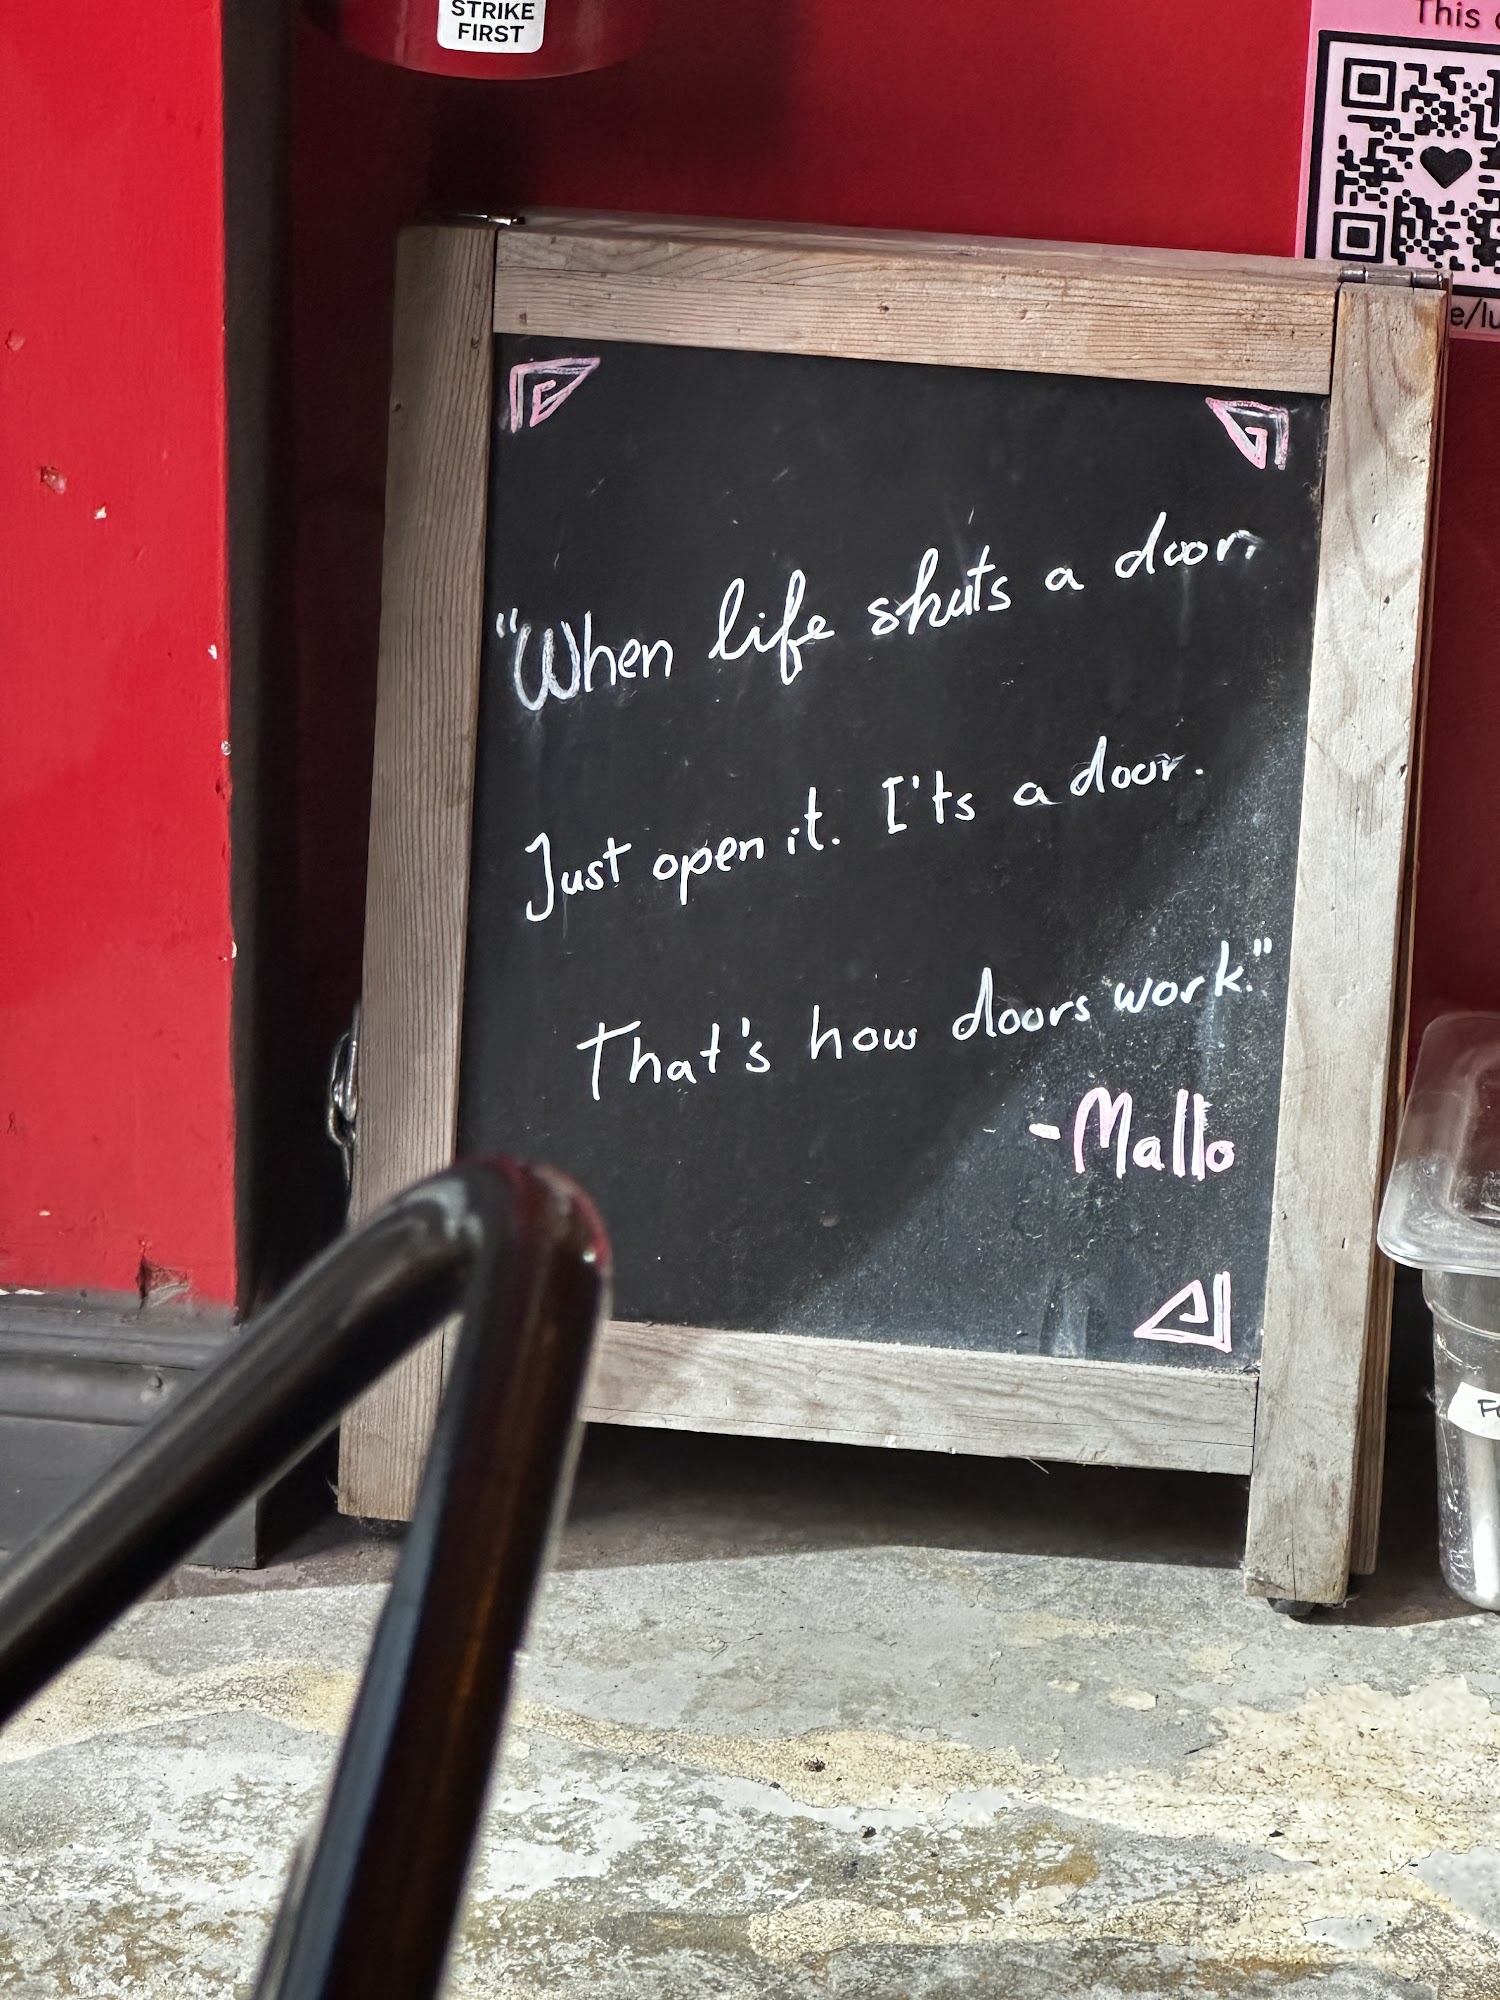 STRIKE
FIRST
This
"When life shuts a door.
Just open it. I'ts a door.
That's how doors work."
-Mallo
e/lu